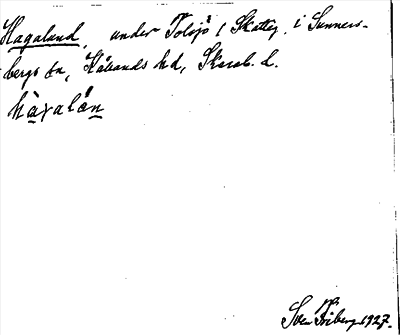 Hagalund, under Tolsjö 1 Skatteg. i Sunners-
bergs sn, Kållands hd, Skarab. l.
Sven Friberg 1927.